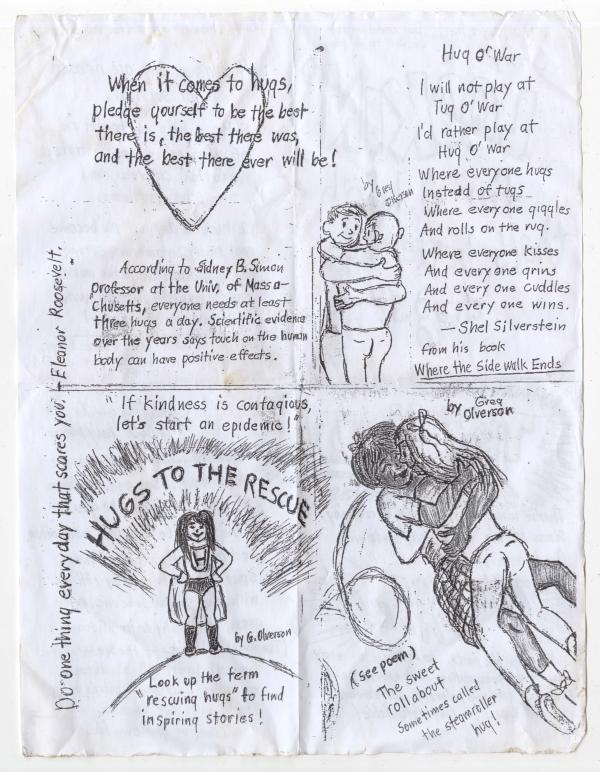 When it comes to hugs,
pledge yourself to be the best
there is, the best there was,
and the best there ever will be!
According to Sidney B. Simon
professor at the Univ. of Massa-
chusetts, everyone needs at least
three hugs a day. Scientific evidence
over the years says touch on the human
body can have positive effects.
Hug O' War
I will not play at
Tug O' War
I'd rather play at
Hug O' War
Where everyone hugs
Instead of tugs
Where everyone giggles
And rolls on the rug.
Where everyone kisses
And everyone grins
And every one cuddles
And every one wins.
— Shel Silverstein
from his book
Where the Side walk Ends
by Greg
Olverson
"Do one thing every day that scares you." - Eleanor Roosevelt.
"If kindness is contagious,
let's start an epidemic!"
HUGS TO THE RESCUE
by G. Olverson
Look up the term
"rescuing hugs" to find
inspiring stories!
by Greg
Olverson
(see poem)
The sweet
rollabout
Sometimes called
the steamroller
hug!